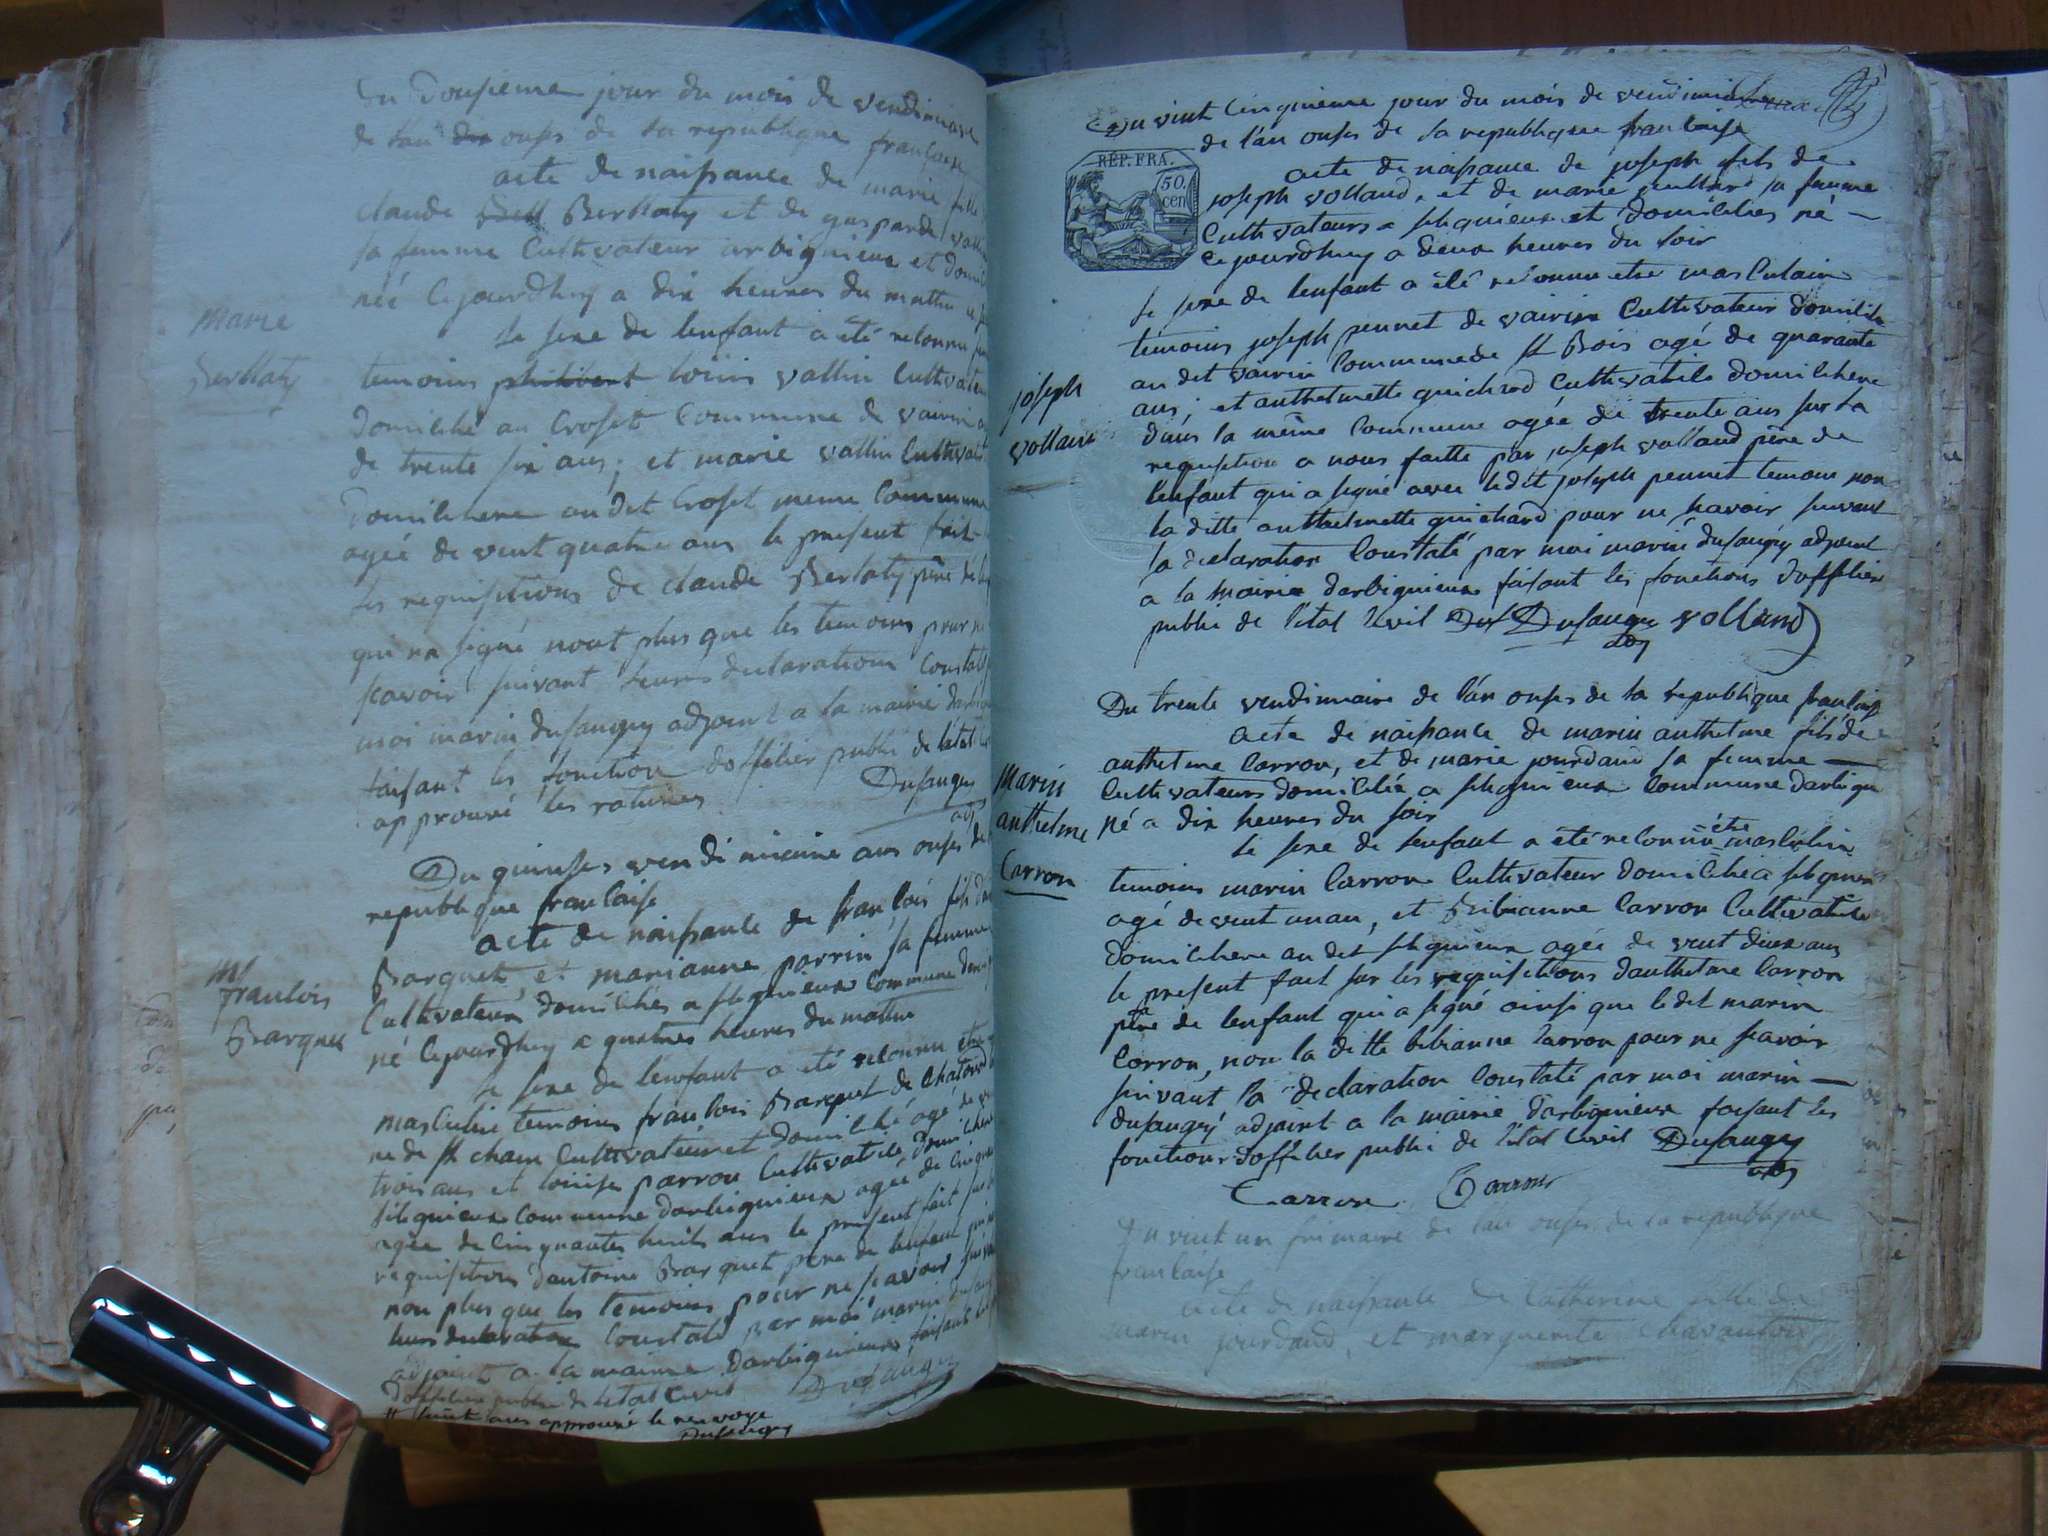 Du dousieme jour du mois de vendimiaire
de l'an ouses de la republique francaise
acte de naissance de marie fille
claude Berlioty et de gasparde vallin
sa femme cultivateur arbignieux et domi
née cejourdhuy a dix heures du matin
le sexe de lenfant a été reconnu
temoins louis vallin cultivateur
domicilié au croset commune de vairin
de trente six ans; et marie vallin cultivat
domiciliere audit croset meme commune
agée de vent quatre ans le present fait
les requisitions de claude Berlioty père de
qui na signé nont plus que les temoins pour ne
scavoir suivant leurs declarations constaté
moi marin dusaugey adjoint a la mairie darbi
faisant les fonction dofficier public de letat
approuvé les ratures Dusaugey
adj
marie
Berlioty
Du quinses vendimiaire ans ouses de
republique francaise
acte de naissance de francois fils d
Barquet, et marianne parrin sa femme
Cultivateurs domiciliés a slignieux commune
né cejourdhuy a quatres heures du matin
le sexe de lenfant a été reconnu etre
masculin temoins francois Barquet de
ne de st cham cultivateur et domicilié agé de
trois ans et louise parron cultivatile domiciliere
slignieux commune darbignieux agée de cinqua
agée de cinquantes huits ans le present fait sur
requisitions dantoine Barquet pere de lenfant
non plus que les temoins pour ne scavoir suiva
leurs declaration constaté par moi marin dusau
adjoint a la mairie darbignieux, faisant les
dofficier public de letat civil Dusaugey
# huit ans approuvé le renvoye
Dusaugey
francois
Barquet
Du vint cinquieme jour du mois de vendimiaire
de l'an ouses de la republique francaise
REP. FRA.
50.
cen
acte de naissance de joseph fils de
joseph volland, et de marie sa femme
Cultivateurs a slignieux et domiciliés né —
cejourdhuy a deux heures du soir
le sexe de lenfant a été reconnu etre masculain
temoins joseph peunet de vairin cultivateur domicilie
audit vairin commune de st Bois agé de quarante
ans; et anthelmette guichard cultivatile domiciliere
dans la même commune agée de trente ans sur la
requisition a nous faitte par joseph volland père de
lenfant qui a signé avec ledit joseph peunet temoin non
la ditte anthelmette guichard pour ne scavoir suivant
sa declaration constaté par moi marin dusaugey adjoint
a la mairie darbignieux faisant les fonctions dofficier
public de l'etat civil Dusaugey volland
adj
joseph
volland
Du trente vendimiaire de l'an ouses de la republique francaise
acte de naissance de marin anthelme fils de
anthelme Carron, et de marie jourdand sa femme —
Cultivateurs domiciliés a slignieux commune darbigni
né a dix heures du soir
le sexe de lenfant a été reconnu être masculin
temoins marin Carron Cultivateur domicilié a slignieux
agé de vent un an, et Bibianne Carron Cultivatile
domiciliere audit slignieux agée de vent deux ans
le present fait sur les requisitions danthelme Carron
père de lenfant qui a signé ainsi que ledit marin
Carron, non la ditte bibianne Carron pour ne scavoir
suivant sa declaration constaté par moi marin —
dusaugey adjoint a la mairie darbignieux faisant les
fonctions dofficier public de l'etat civil Dusaugey
adj
Carron Carron
marin
anthelme
Carron
Du vent un frimaire de l'an ouses de la republique
francaise
acte de naissance de Catherine fille de
marin jourdand, et marguerite